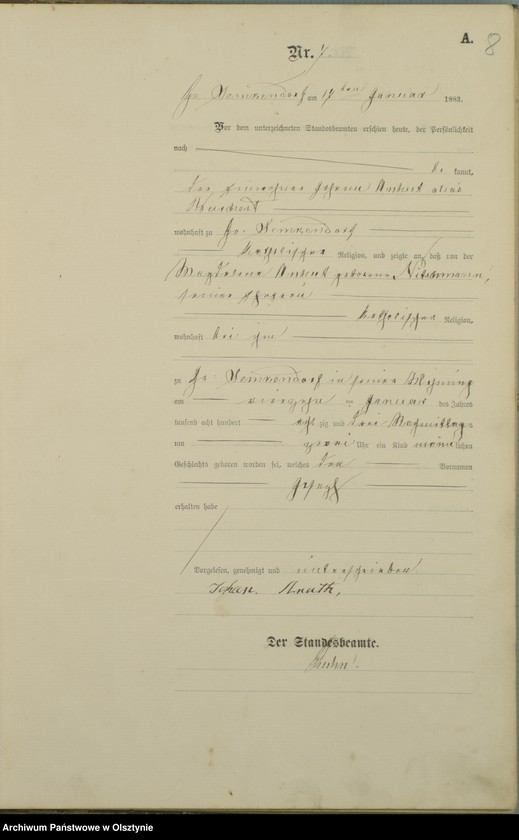 A.
8
Nr. 7.
Gr. Lemkendorf am 17ten Januar 1883.
Vor dem unterzeichneten Standesbeamten erschien heute, der Persönlichkeit
nach
be kannt,
der Johann alias
wohnhaft zu Gr. Lemkendorf
katholischer Religion, und zeigte an, daß von der
Magdalena geborene Nitschmann,
seiner Ehefrau
katholischer Religion,
wohnhaft bei ihm
zu Gr. Lemkendorf in seiner Wohnung
am vierzehn ten Januar des Jahres
tausend acht hundert achtzig und drei Nachmittags
um zwei Uhr ein Kind männlichen
Geschlechts geboren worden sei, welches den Vornamen
Joseph
erhalten habe
Vorgelesen, genehmigt und unterschrieben
Johan.
Der Standesbeamte.
Archiwum Państwowe w Olsztynie